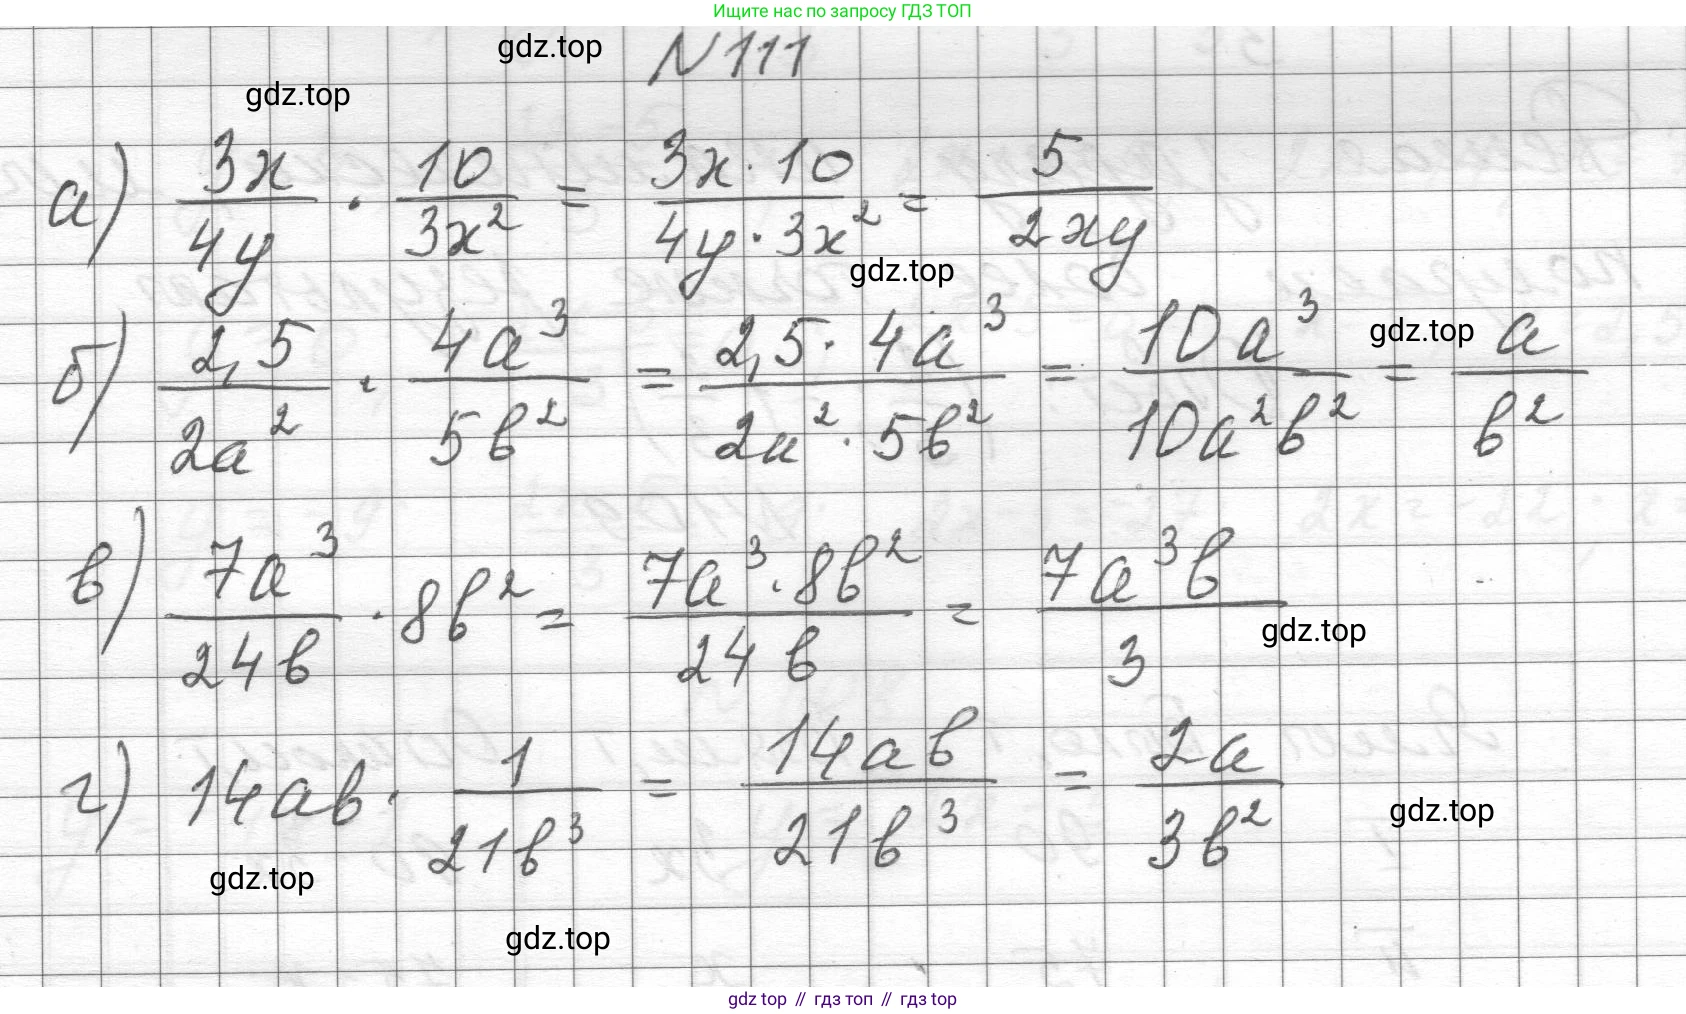 Ищите нас по запросу ГДЗ ТОП
gdz.top
N 111
gdz.top
а) 3x/4y · 10/3x² = 3x · 10/4y · 3x² = 5/2xy
gdz.top
б) 2,5/2a² · 4a³/5b² = 2,5 · 4a³/2a² · 5b² = 10a³/10a²b² = a/b²
gdz.top
в) 7a³/24b · 8b² = 7a³ · 8b²/24b = 7a³b/3
gdz.top
г) 14ab · 1/21b³ = 14ab/21b³ = 2a/3b²
gdz.top
gdz.top
gdz.top
gdz top // гдз топ // гдз top